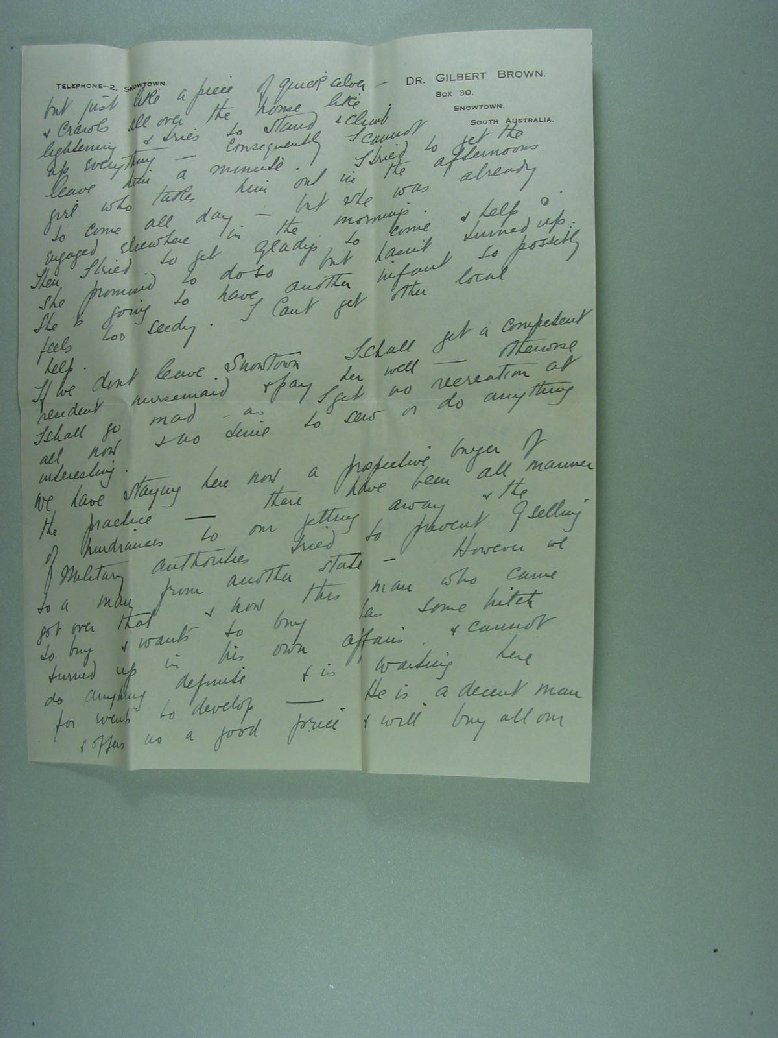 TELEPHONE—2, SNOWTOWN.
DR. GILBERT BROWN.
BOX 30.
SNOWTOWN.
SOUTH AUSTRALIA.
but just like a piece of quick silver —
& crawls all over the house like
lightening & tries to stand & climb
up everything — consequently I cannot
leave him a minute. I tried to get the
girl who takes him out in the afternoons
to come all day — but she was already
engaged elsewhere in the mornings.
Then I tried to get Gladys to come & help.
She promised to do so but hasn't turned up.
She is going to have another infant so possibly
feels too seedy. I can't get other local
help.
If we dont leave Snowtown I shall get a competent
resident nursemaid & pay her well — otherwise
I shall go mad — as I get no recreation at
all now & no time to sew or do anything
interesting.
We have staying here now a prospective buyer of
the practice — there have been all manner
of hindrances to our getting away & the
Military authorities tried to prevent G selling
to a man from another state — However we
got over that & now this man who came
to buy & wants to buy has some hitch
turned up in his own affairs & cannot
do anything definite & is waiting here
for events to develop — He is a decent man
& offers us a good price & will buy all our